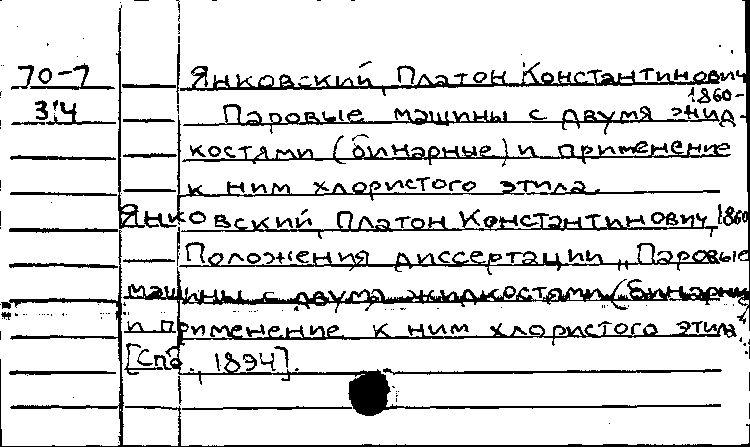 70-7 Янковский, Платон Константинович
1860-
3:4 Паровые машины с двумя жид-
костями (бинарные) и применение
к ним хлористого этила.
Янковский, Платон Константинович, 1860
Положения диссертации „Паровые
машины с двумя жидкостями (бинарны
и применение к ним хлористого этила
[Спб., 1894].